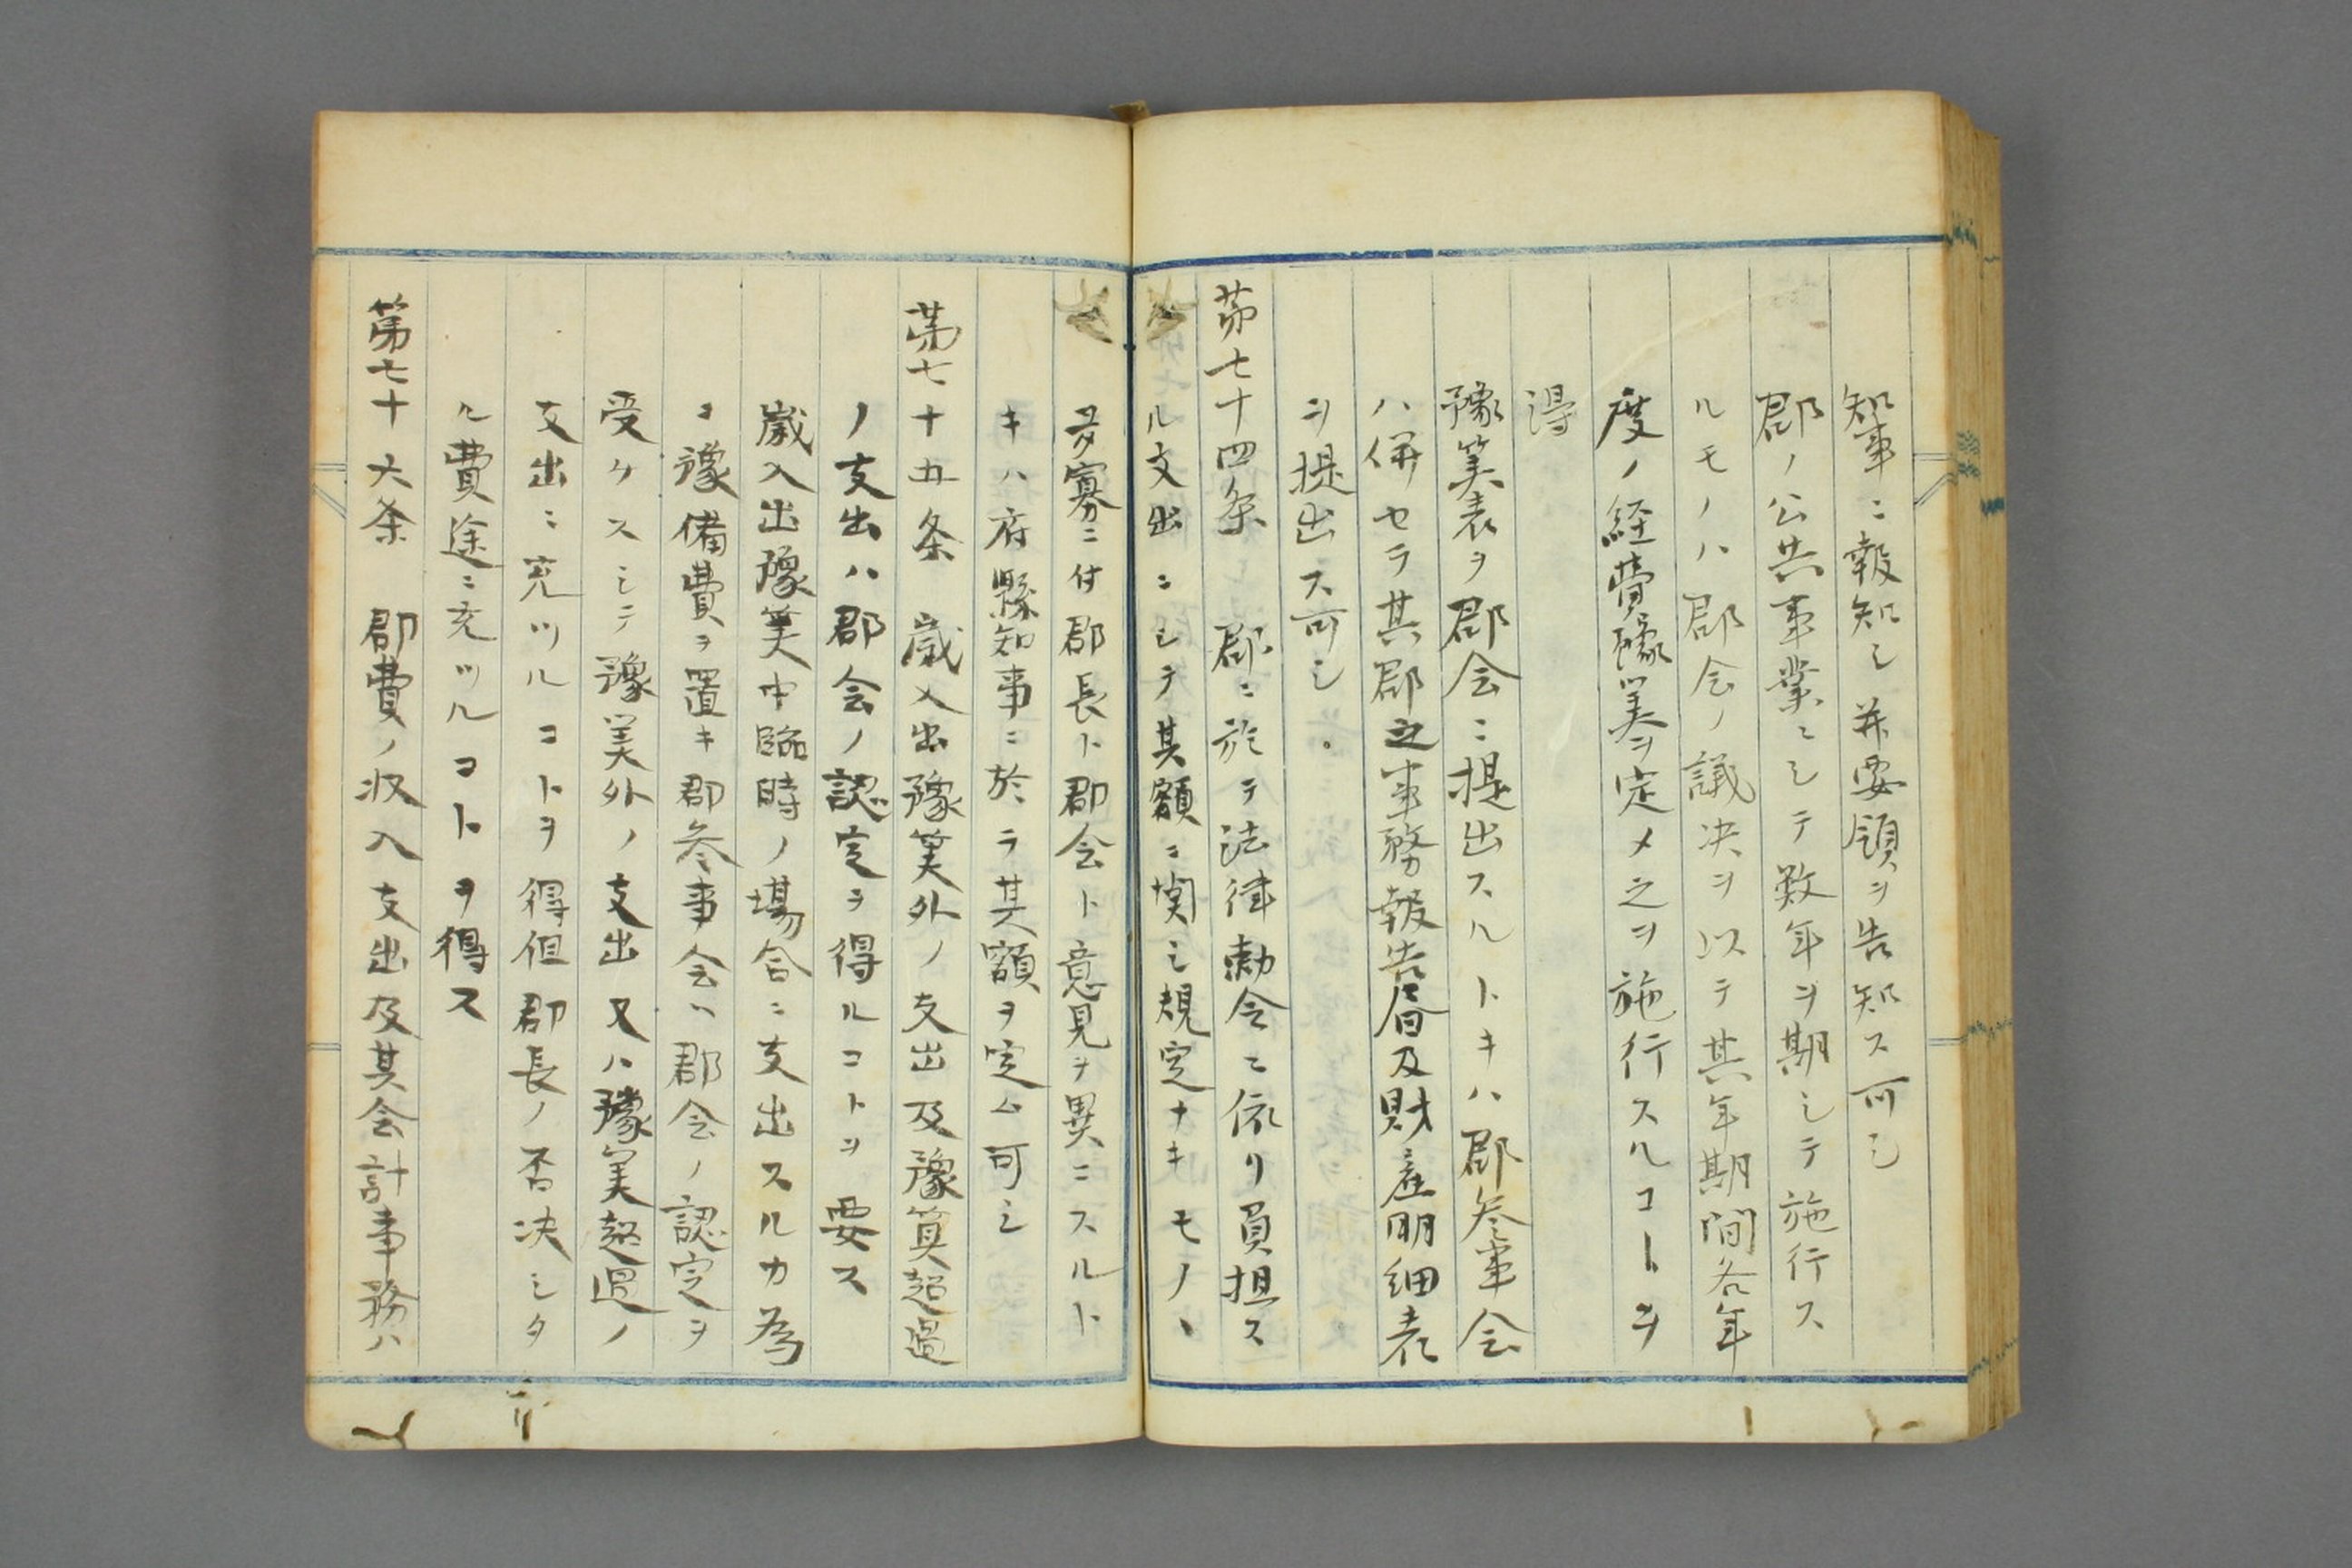 知事ニ報知シ并要領ヲ告知ス可シ
郡ノ公共事業ニシテ数年ヲ期シテ施行ス
ルモノハ郡会ノ議决ヲ以テ其年期間各年
度ノ経費豫筭ヲ定メ之ヲ施行スルコトヲ
得
豫筭表ヲ郡会ニ提出スルトキハ郡参事会
ハ併セテ其郡之事務報告書及財産明細表
ヲ提出ス可シ
第七十四条 郡ニ於テ法律勅令ニ依リ負担ス
ル支出ニシテ其額ニ関シ規定ナキモノヽ
多寡ニ付郡長ト郡会ト意見ヲ異ニスルト
キハ府縣知事ニ於テ其額ヲ定ム可シ
第七十五条 歳入出豫筭外ノ支出及豫算超過
ノ支出ハ郡会ノ認定ヲ得ルコトヲ要ス
歳入出豫筭中臨時ノ場合ニ支出スルカ為
ニ豫備費ヲ置キ郡参事会ハ郡会ノ認定ヲ
受ケスシテ豫筭外ノ支出又ハ豫筭超過ノ
支出ニ充ツルコトヲ得但郡長ノ否决シタ
ル費途ニ充ツルコトヲ得ス
第七十六条 郡費ノ収入支出及其会計事務ハ